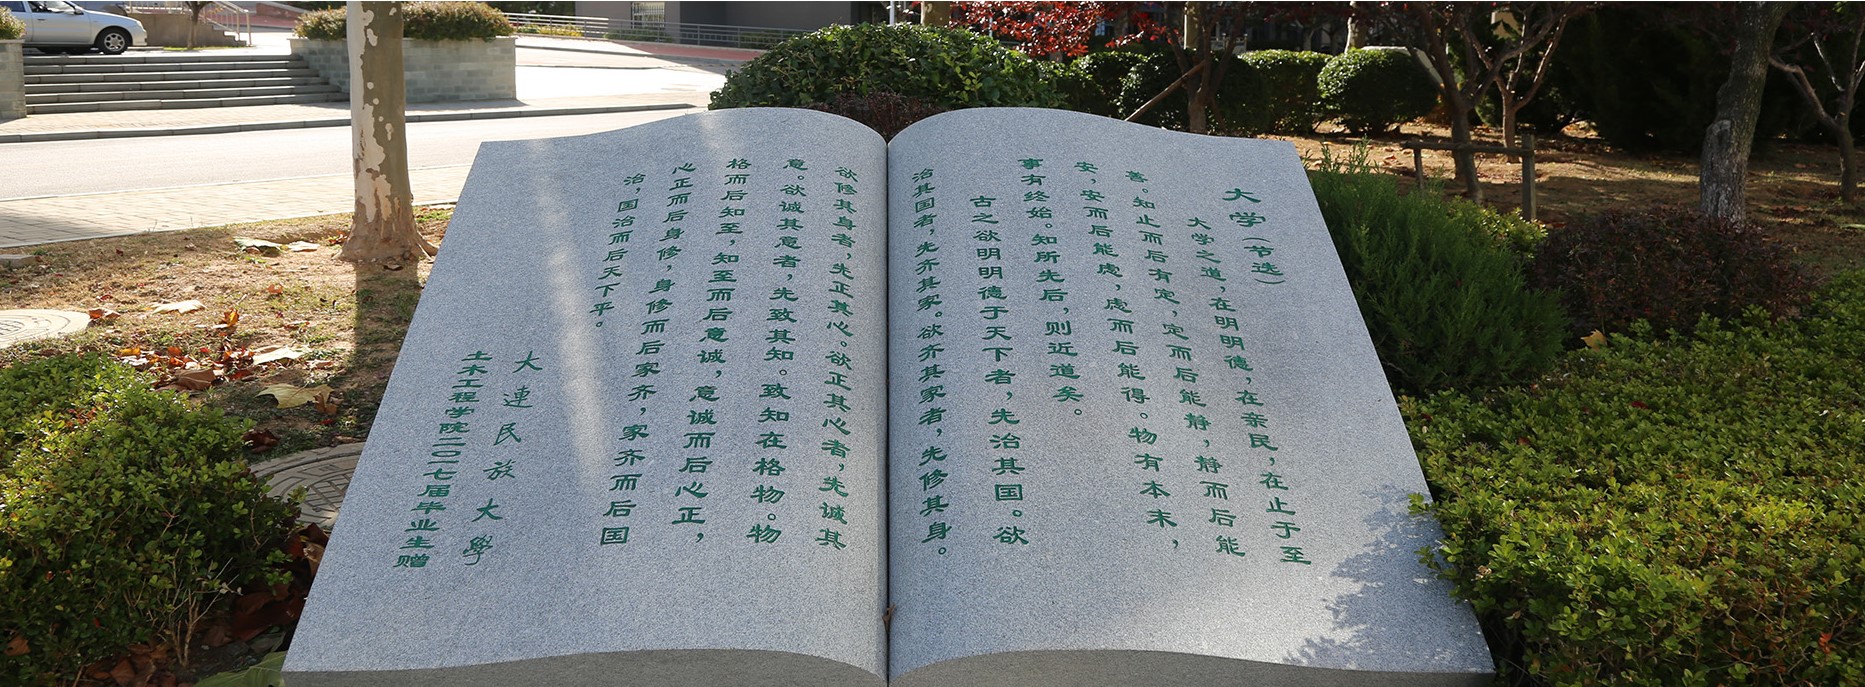 大学（节选）
大学之道，在明明德，在亲民，在止于至
善。知止而后有定，定而后能静，静而后能
安，安而后能虑，虑而后能得。物有本末，
事有终始。知所先后，则近道矣。
古之欲明明德于天下者，先治其国。欲
治其国者，先齐其家。欲齐其家者，先修其身。
欲修其身者，先正其心。欲正其心者，先诚其
意。欲诚其意者，先致其知。致知在格物。物
格而后知至，知至而后意诚，意诚而后心正，
心正而后身修，身修而后家齐，家齐而后国
治，国治而后天下平。
大連民族大學
土木工程学院二〇一七届毕业生赠